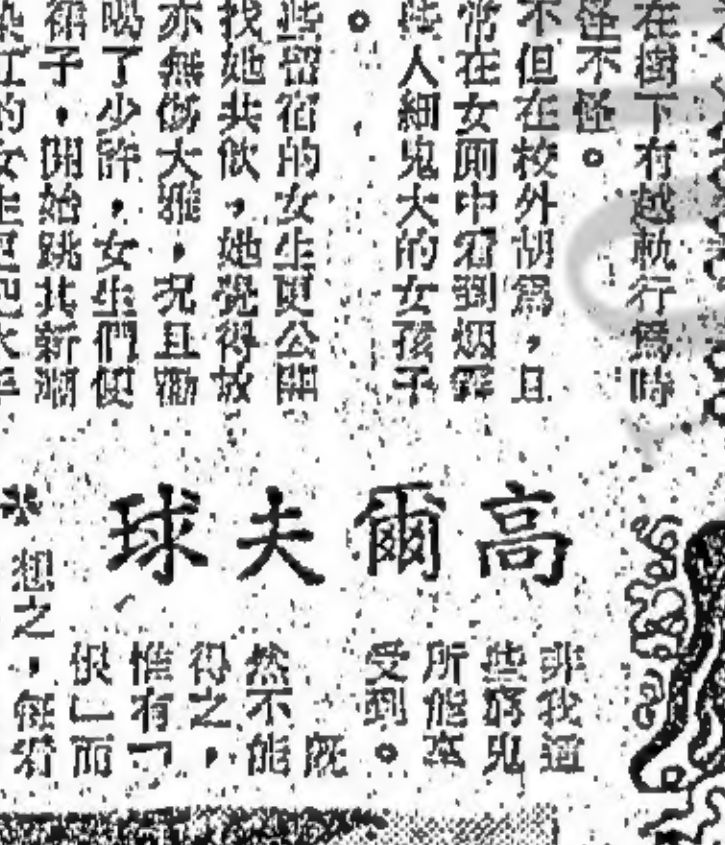 在樹下有越軌行為時
怪不怪。
不但在校外胡為，且
常在女厠中看到烟霧
些人細鬼大的女孩子
。
些留宿的女生更公開
找她共飲，她覺得放
亦無傷大雅，況且勸
喝了少許，女生們便
裙子，開始跳其新潮
的女生更把大半
高爾夫球
非我這
些窮鬼
所能享
受到。
既
然不能
得之，
惟有「
恨」而
想之，每看